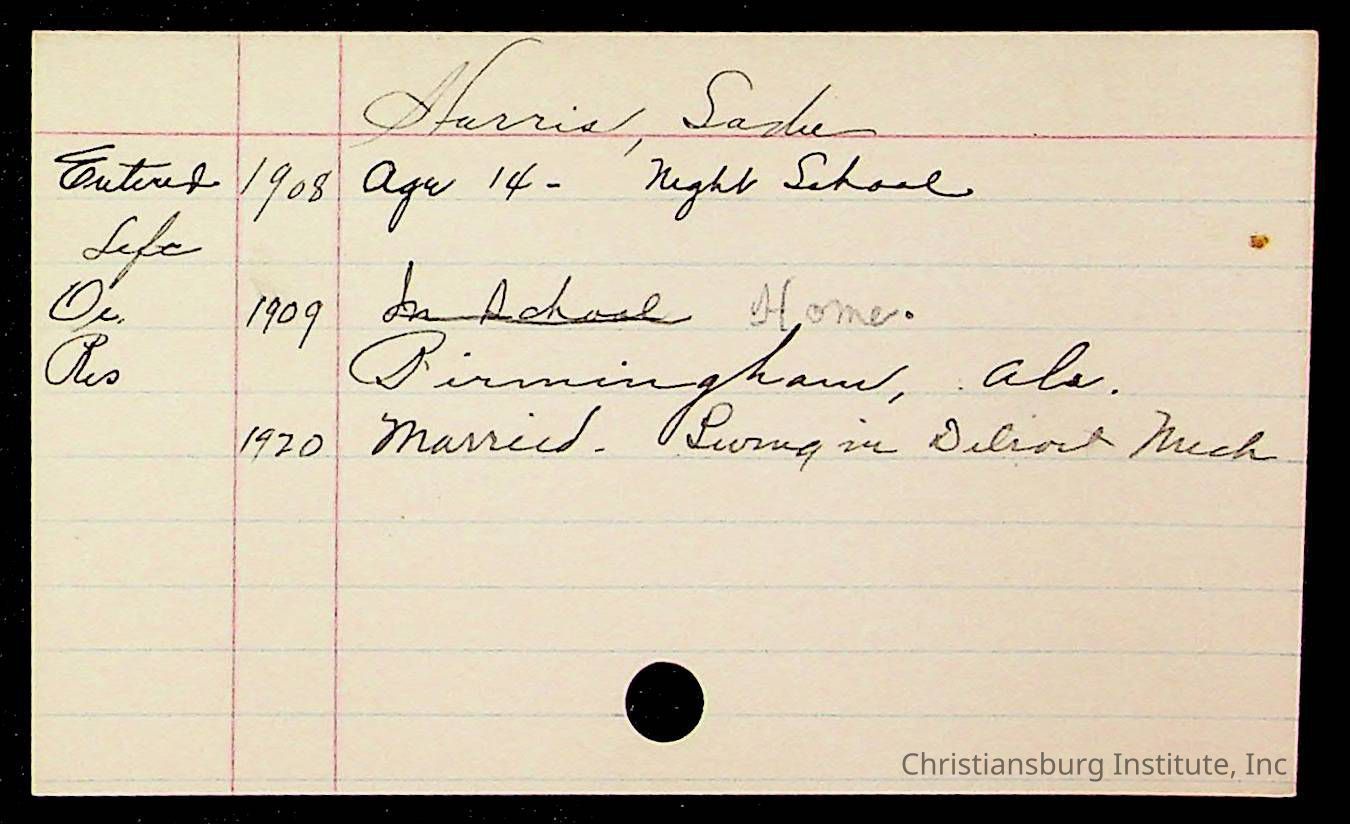 Harris, Sadie
Entered 1908 Age 14 - Night School
Left
Oc. 1909 In School Home.
Res Birmingham, Ala.
1920 Married. Living in Detroit Mich
Christiansburg Institute, Inc